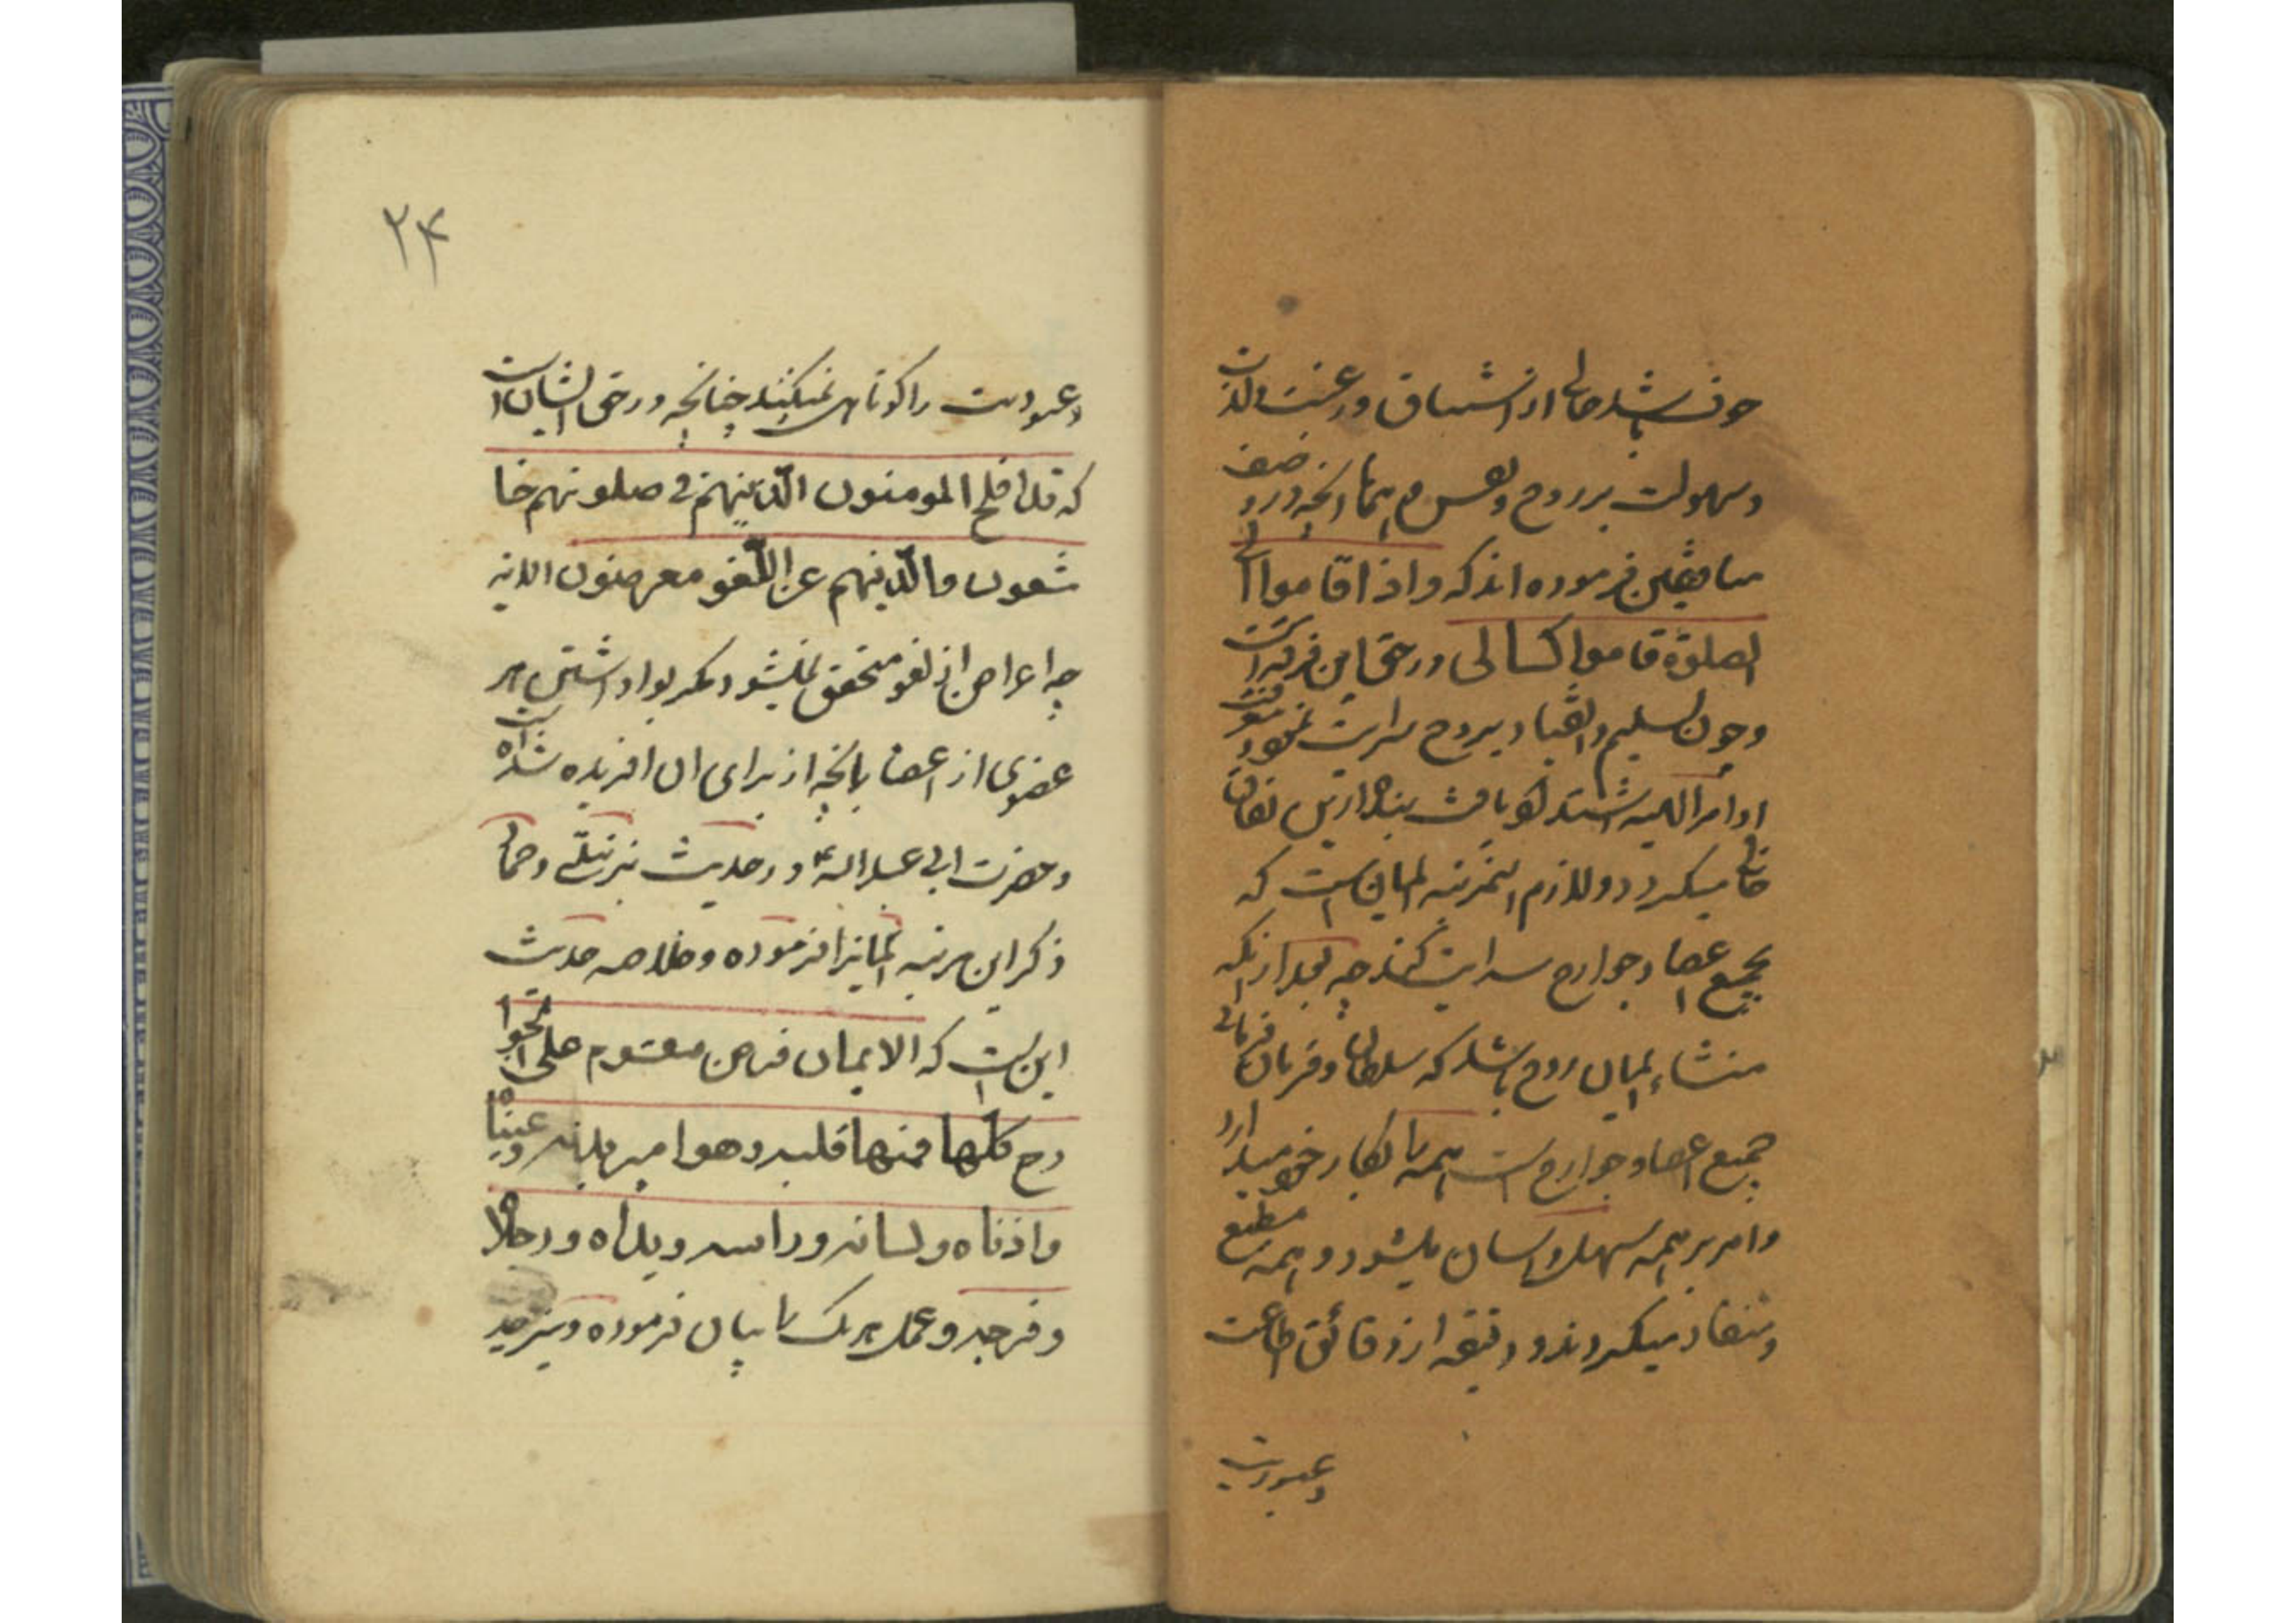 چون باشد خالی از اشتیاق و رغبت و لذت
و سهولت بر روح و نفس هم همانا انچه در وصف
منافقین فرموده اند که و اذا قاموا الی
الصلوة قاموا کسالی در حق این فرقه است
و چون تسلیم و انقیاد بروح سرایت نمود و
اوامر الهیه
خالی میگردد و لازم اینمرتبه ایمان است که
بجمیع اعضا و جوارح سرایت کند چه بعد از انکه
منشاء ایمان روح باشد که سلطان و فرمان فرمای
جمیع اعضا و جوارح است همه را بکار خود میدارد
و امر بر همه سهل و اسان میشود و همه مطیع
و منقاد میگردند و دقیقه از دقائق اطاعت
و عبودیت
۲۴
و عبودیت را کوتاهی نمیکنند چنانچه در حق ایشان است
که قد افلح المومنون الّذینهم فی صلوتهم خا
شعون والّذینهم عن اللّغو معرضون الایه
چه اعراض از لغو متحقق نمیشود مگر بواداشتن هر
عضوی از اعضا بانچه از برای ان افریده شده است
و حضرت ابی عبدالله ع در حدیث زبیری و حماد
ذکر این مرتبه ایمانرا فرموده و خلاصه حدیث
این است که الایمان فرض مقسوم علی الجوا
رح کلّها فمنها قلبه و هو امیر بدنه و عیناه
و اذناه و لسانه و راسه و یداه و رجلاه
و فرجه و عمل هر یک را بیان فرموده و نیز حد